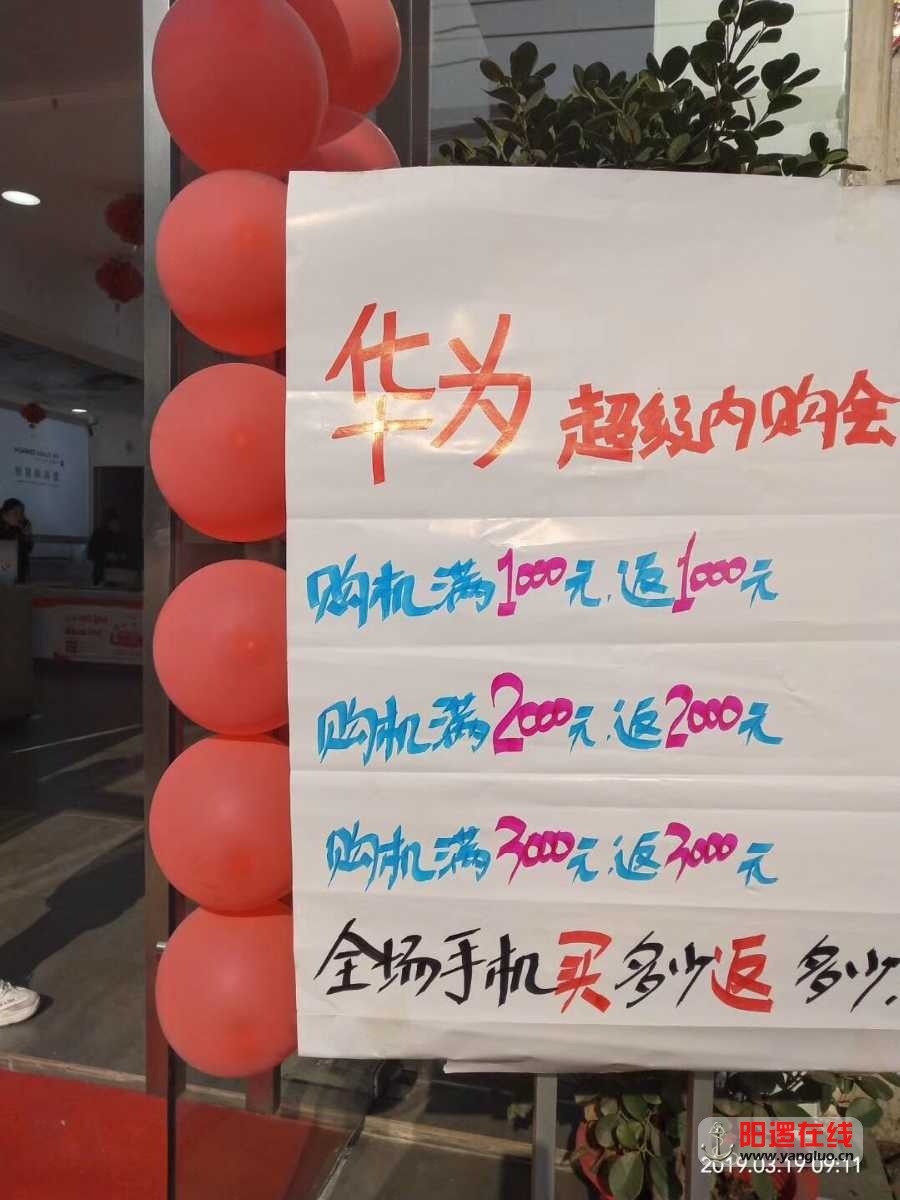 华为 超级内购会
购机满1000元.返1000元
购机满2000元.返2000元
购机满3000元.返3000元
全场手机买多少返多少.
阳逻在线
www.yangluo.cn
2019.03.19 09:11